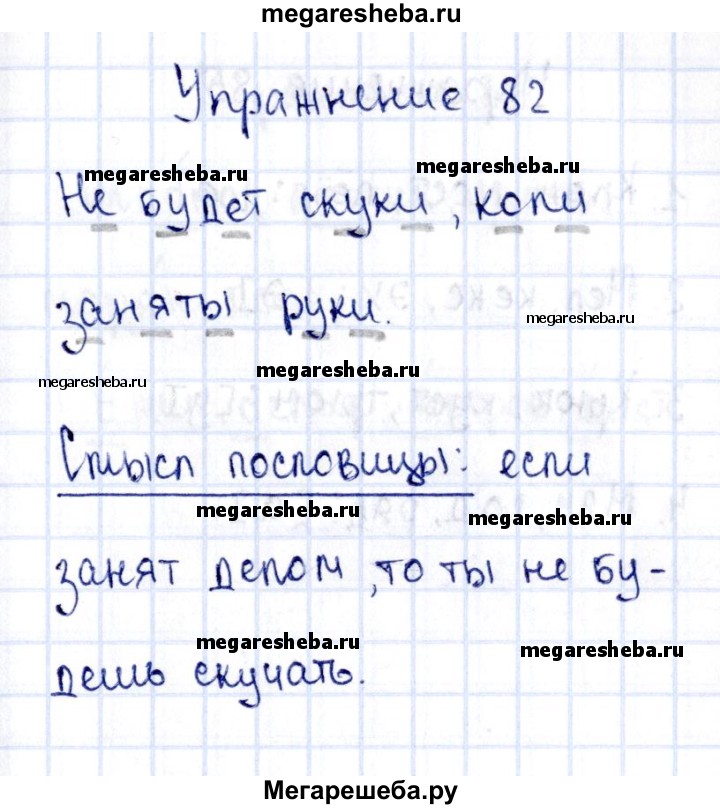 megaresheba.ru
Упражнение 82
megaresheba.ru megaresheba.ru
Не будет скуки, коли
заняты руки. megaresheba.ru
megaresheba.ru megaresheba.ru
Смысл пословицы: если
megaresheba.ru megaresheba.ru
занят делом, то ты не бу-
megaresheba.ru megaresheba.ru
дешь скучать.
Мегарешеба.ру